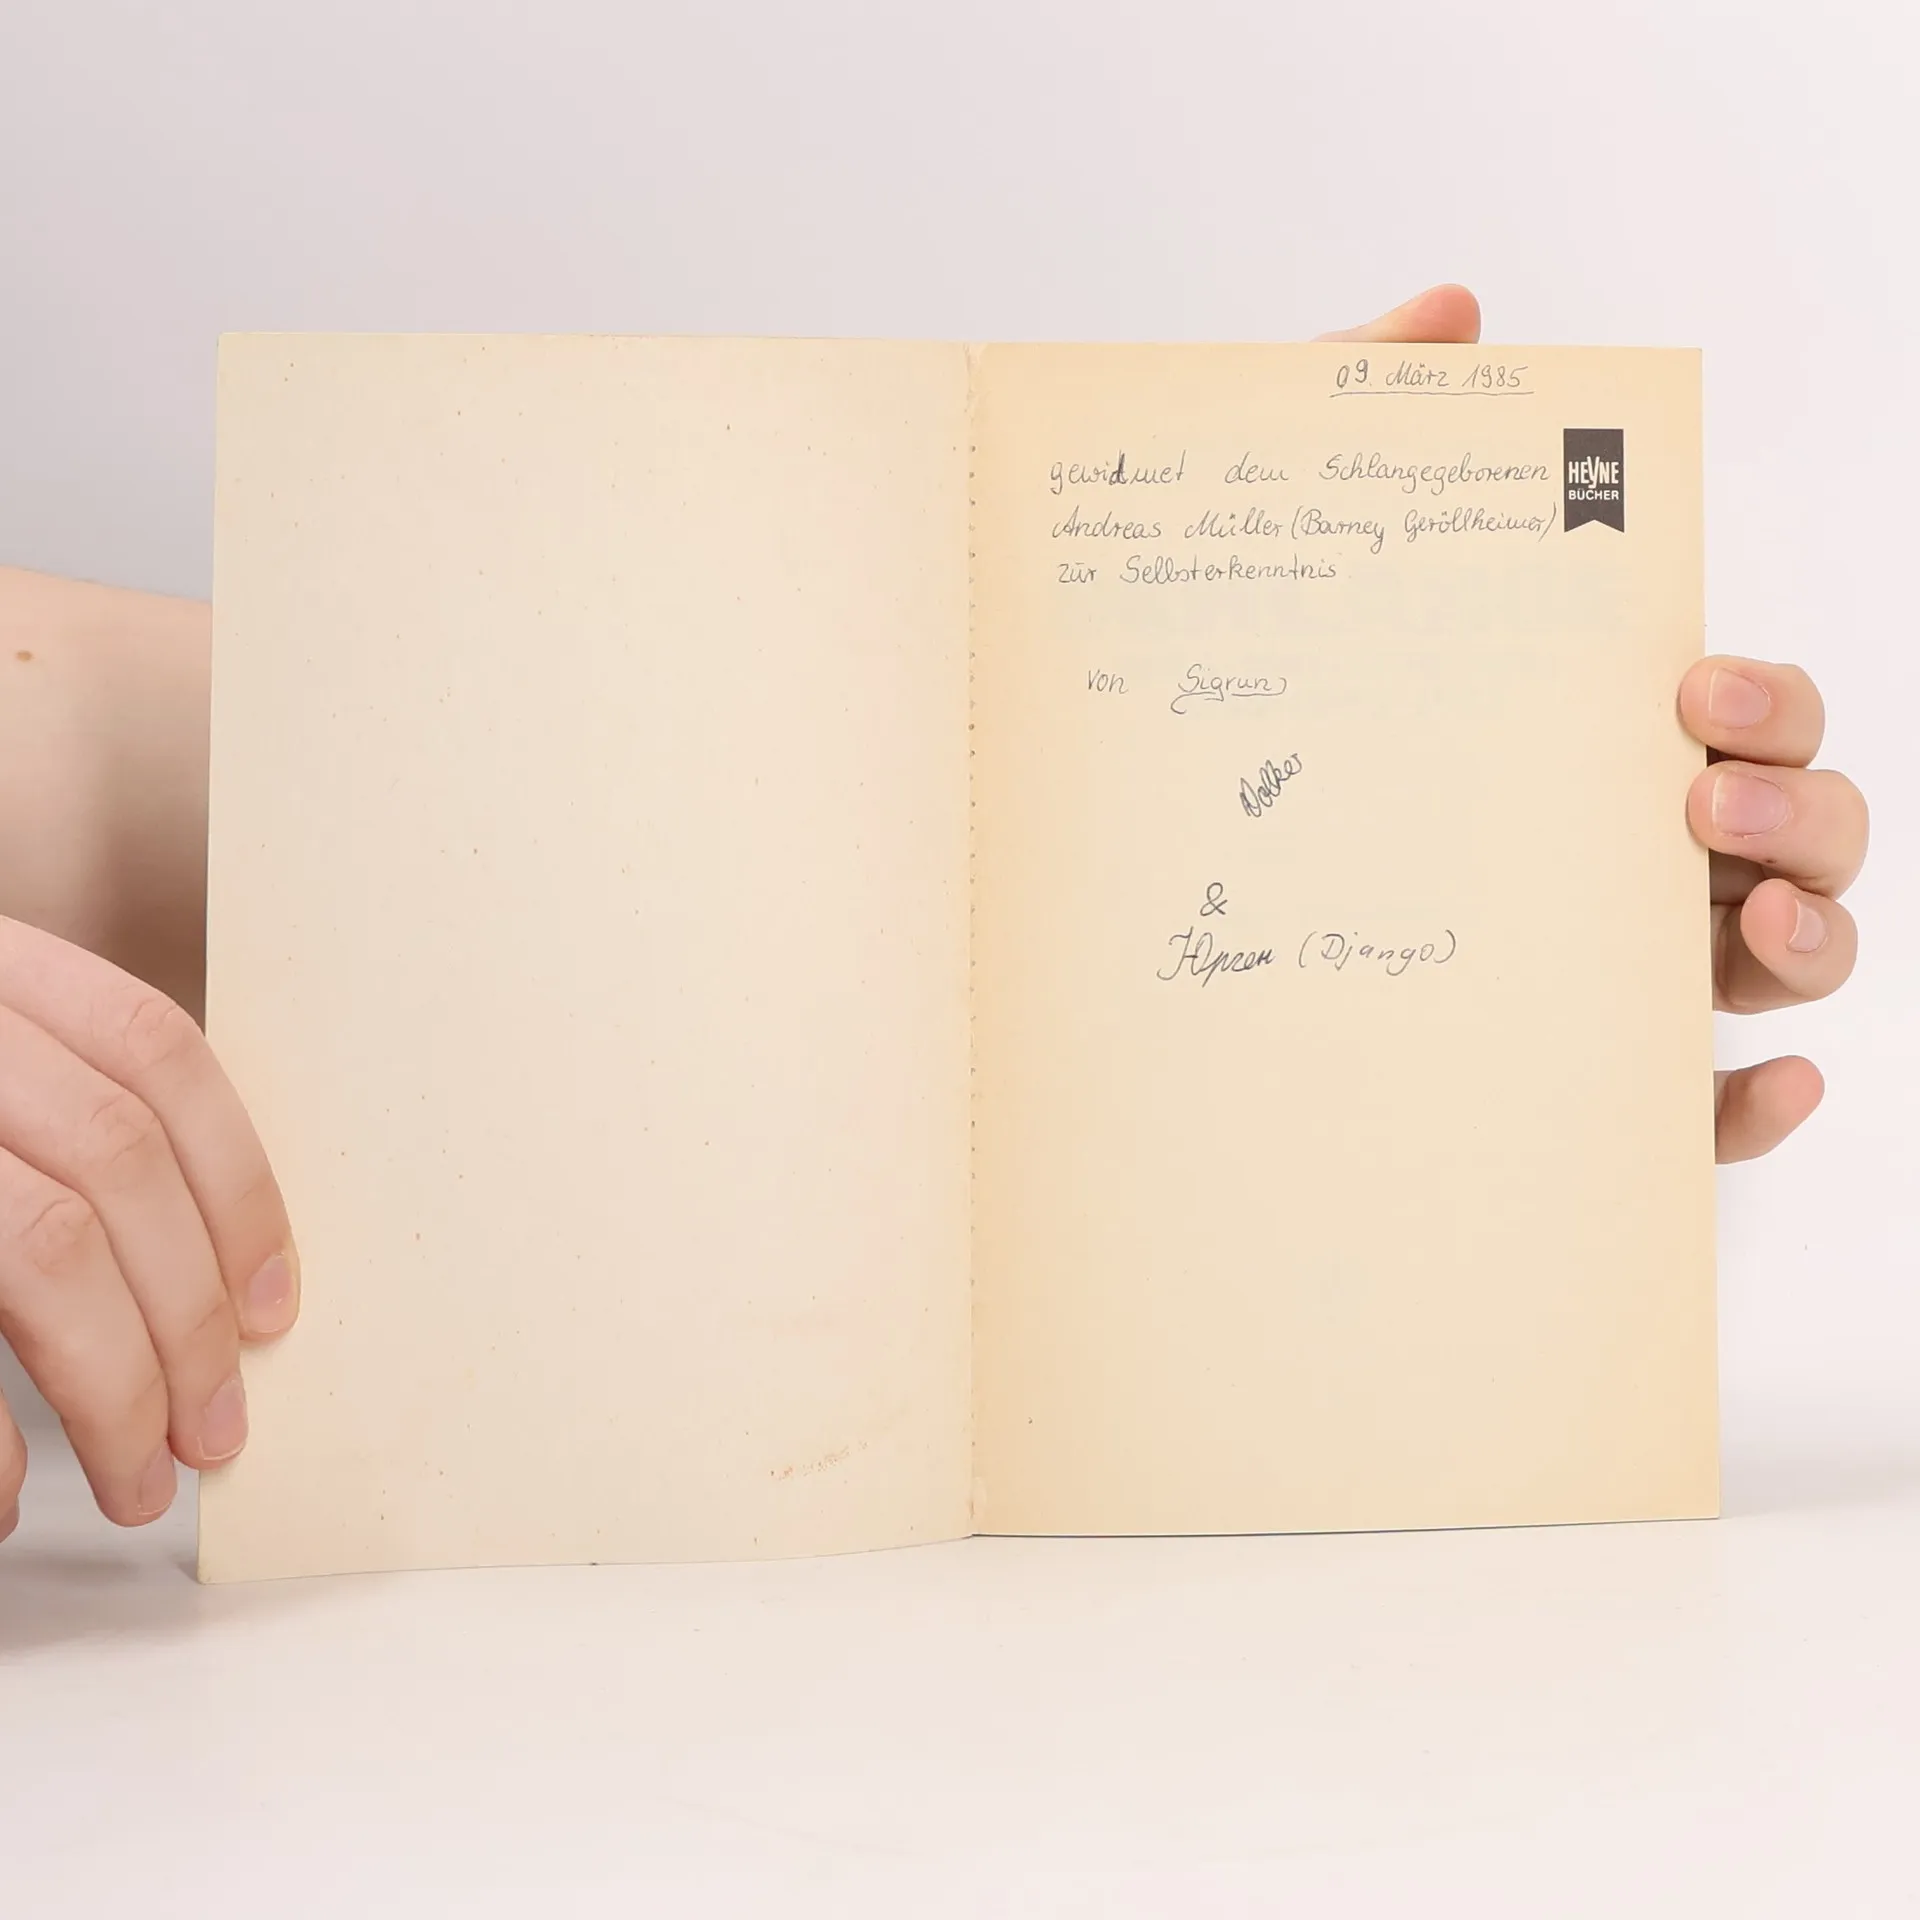 09. März 1985
gewidmet dem Schlangegeborenen
Andreas Müller (Barney Geröllheimer)
zur Selbsterkenntnis
HEYNE
BÜCHER
von Sigrun
Volker
&
Юрген (Django)